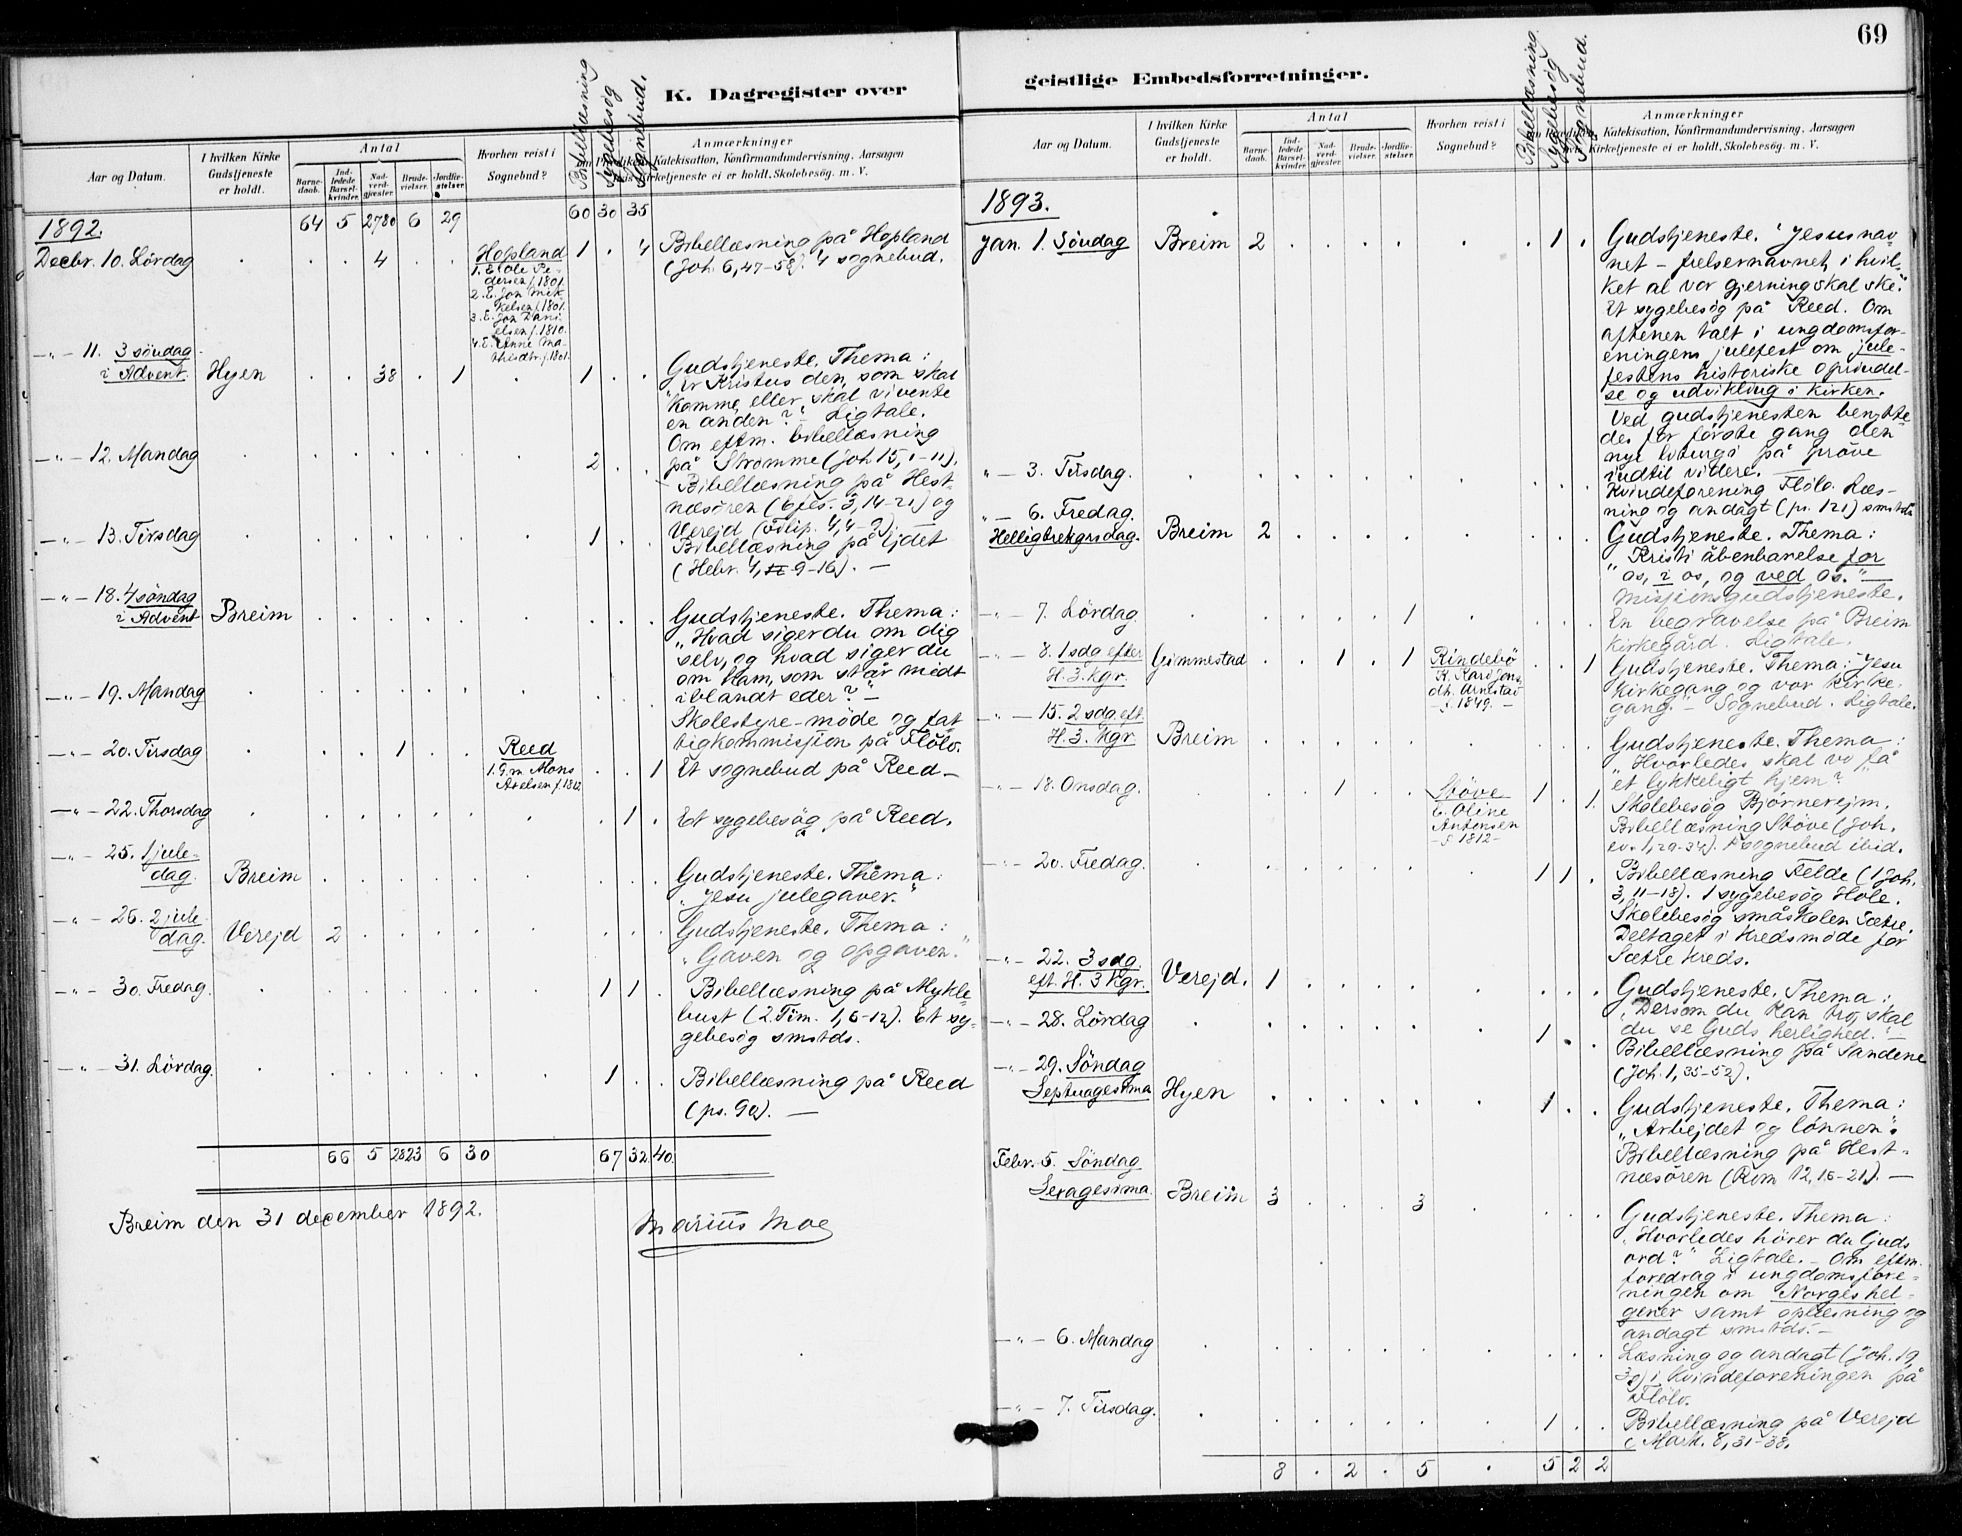 69
K. Dagregister over
geistlige Embedsforretninger.
Aar og Datum.
I hvilken Kirke
Gudstjeneste
er holdt.
Antal
Barne-
daab.
Ind-
ledede
Barsel-
kvinder.
Nad-
verd-
gjæster.
Brude-
vielser.
Jordfæ-
stelser.
Hvorhen reist i
Sognebud?
Bibellæsning
Sygebesøg
Sognebud.
Anmærkninger
om Prædiken, Katekisation, Konfirmandundervisning. Aarsagen
hvis Kirketjeneste ei er holdt. Skolebesøg. m. V.
1892. 64 5 2780 6 29 60 30 35
Decbr. 10. Lördag 4 Hopland 1 . 4 Bibellæsning på Hopland
(Joh. 6, 47-58). 4 sognebud.
1. E. Ole Pe-
dersen f. 1801.
2. E. Jon Mik-
kelsen f. 1801.
3. E. Jon Dani-
elsen f. 1810.
4. E. Anne Ma-
thisdtr. f. 1801.
-"- 11. 3 söndag
i Advent. Hyen . . 38 . 1 . 1 . . Gudstjeneste. Thema:
"Er Kristus den, som skal
komme, eller skal vi vente
en anden?" Ligtale.
Om eftm. bibellæsning
på Strömme (Joh 15, 1-11).
-"- 12. Mandag 2 . . Bibellæsning på Hest-
næsören (Efes. 3, 14-21) og
Verejd (Filip. 4, 4-9). —
-"- 13. Tirsdag 1 . . Bibellæsning på Ejdet
(Hebr. 4, 9-16). —
-"- 18. 4 söndag
i Advent Breim Gudstjeneste. Thema:
"Hvad siger du om dig
selv, og hvad siger du
om Ham, som står midt
iblandt eder?" —
-"- 19. Mandag Skolestyre-möde og fat
tigkommission på Flölo.
-"- 20. Tirsdag 1 Reed . . 1 Et sognebud på Reed —
1. G.m. Mons
Axelsen f. 1812
-"- 22. Thorsdag . 1 . Et sygebesög på Reed.
-"- 25. 1 jule-
dag. Breim Gudstjeneste. Thema:
"Jesu julegaver."
-"- 26. 2 jule-
dag. Verejd 2 Gudstjeneste. Thema:
"Gaven og opgaven."
-"- 30. Fredag. 1 1 . Bibellæsning på Mykle-
bust (2. Tim. 1, 6-12). Et sy-
gebesög smstds.
-"- 31. Lördag. 1 . . Bibellæsning på Reed
(ps. 90). —
66 5 2823 6 30 67 32 40.
Breim den 31 december 1892. Marius Moe
Aar og Datum.
I hvilken Kirke
Gudstjeneste
er holdt.
Antal
Barne-
daab.
Ind-
ledede
Barsel-
kvinder
Nad-
verd-
gjæster.
Brude-
vielser.
Jordfæ-
stelser.
Hvorhen reist i
Sognebud?
Bibellæsning
Sygebesög
Sognebud.
Anmærkninger
om Prædiken, Katekisation, Konfirmandundervisning. Aarsagen
hvis Kirketjeneste ei er holdt. Skolebesøg. m. V.
1893.
Jan. 1. Söndag Breim 2 . 1 . Gudstjeneste. "Jesusnav-
net – frelsernavnet, i hvil-
ket al vor gjerning skal ske."
Et sygebesög på Reed. Om
aftenen talt i ungdomsfor-
eningens julefest om jule-
festens historiske oprindel-
se og udvikling i kirken.
Ved gudstjenesten benytte-
des for förste gang den
nye liturgi på pröve
indtil videre.
"- 3. Tirsdag. Kvindeforening Flölo. Læs-
ning og andagt (ps. 121) smstds
"- 6. Fredag.
Helligtrekgrsdag. Breim 2 Gudstjeneste. Thema:
"Kristi åbenbarelse for
os, i os, og ved os." —
Missionsgudstjeneste.
-"- 7. Lördag 1 En begravelse på Breim
kirkegård. Ligtale.
-"- 8. 1 sdg efter
H. 3. kgr. Gimmestad . . 1 . 1 Rindebö . . 1 Gudstjeneste. Thema: "Jesu
kirkegang og vor kirke-
gang." – Sognebud. Ligtale.
K. Kari Jens
dtr. Arnestad
– f. 1849. –
-"- 15. 2 sdg. eft.
H. 3. Kgr. Breim Gudstjeneste. Thema:
"Hvorledes skal vi få
et lykkeligt hjem?"
-"- 18. Onsdag. 1 Stöve 1 . 1. Skolebesög Bjørnereim.
Bibellæsning Stöve (Joh.
ev. 1, 29-34). 1 sognebud ibid.
E. Oline
Antonsen
– f. 1812 –
-"- 20. Fredag. 1 1 . Bibellæsning Felde (1 Joh.
3, 11-18). 1 sygebesög Hole.
Skolebesög småskolen Sætre.
Deltaget i kredsmöde for
Sætre kreds.
-"- 22. 3 sdg.
eft. H. 3 kgr. Verejd. 1 Gudstjeneste. Thema:
"Dersom du kan tro, skal
du se Guds herlighed." —
-"- 28. Lördag 1 . . Bibellæsning på Sandene
(Joh. 1, 35-52).
-"- 29. Söndag
Septuagesima Hyen 1 . . Gudstjeneste. Thema:
"Arbejdet og lönnen."
Bibellæsning på Hest-
næsören (Rom 12, 16-21). —
Febr. 5. Söndag
Sexagesima. Breim 3 . . . 3 Gudstjeneste. Thema:
"Hvorledes hörer du Guds
ord?" Ligtale. – Om eftm.
foredrag i ungdomsfore-
ningen om Norges hel-
gener samt oplæsning og
andagt smstds. –
-"- 6. Mandag Læsning og andagt (Joh. 19,
30) i kvindeforeningen på
Flölo.
-"- 7. Tirsdag. 1 . . Bibellæsning på Verejd
(Mark. 8, 31-38.
8 . 2 . 5 . 5 2 2